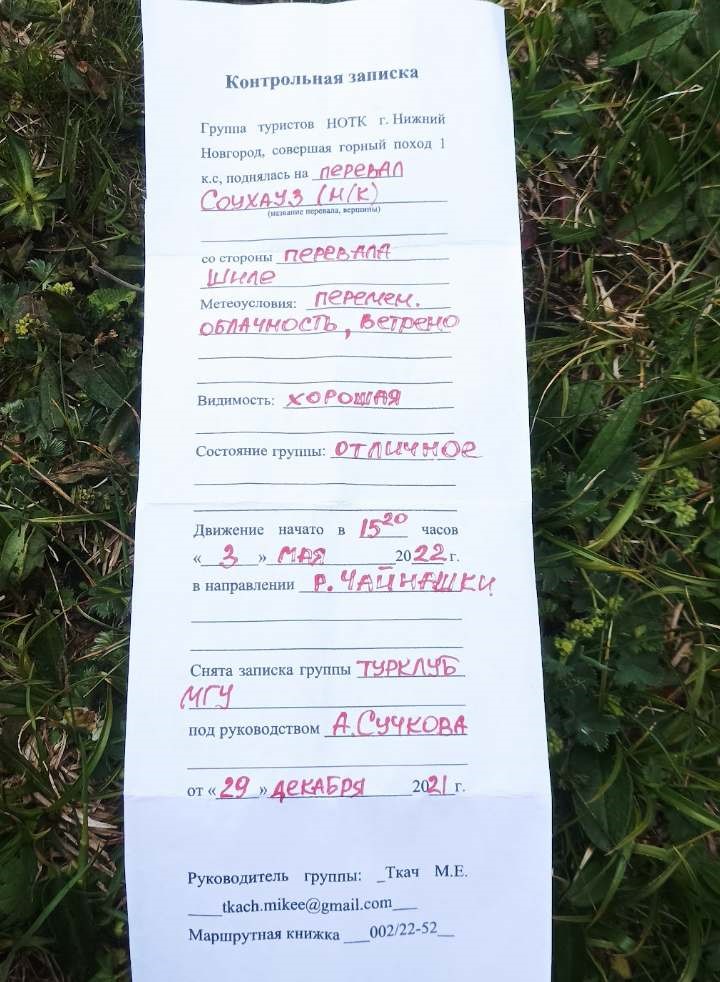 Контрольная записка
Группа туристов НОТК г. Нижний
Новгород, совершая горный поход 1
к.с, поднялась на перевал
Соухауз (н/к)
(название перевала, вершины)
со стороны перевала
Шиле
Метеоусловия: перемен.
облачность, ветрено
Видимость: хорошая
Состояние группы: отличное
Движение начато в 15 20 часов
«3» мая 2022 г.
в направлении р. Чайнашки
Снята записка группы турклуб
МГУ
под руководством А. Сучкова
от «29» декабря 2021 г.
Руководитель группы: _Ткач М.Е.
____tkach.mikee@gmail.com___
Маршрутная книжка ___002/22-52__